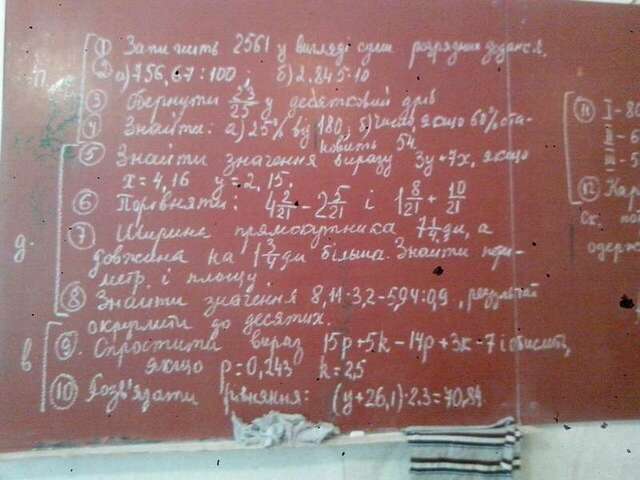 ① Запишіть 2561 у вигляді суми розрядних доданків.
② а) 756,67:100; б) 2,845·10
③ Обернути 23/25 у десятковий дріб
④ Знайти: а) 25% від 180, б) число, якщо 60% ста-
новить 54
⑤ Знайти значення виразу 3y+7x, якщо
x=4,16 y=2,15.
⑥ Порівняти: 4 2/21 - 2 5/21 і 1 8/21 + 10/21
⑦ Ширина прямокутника 7 1/4 дм, а
довжина на 1 3/4 дм більша. Знайти пери-
метр і площу.
⑧ Знайти значення 8,11·3,2-5,94:0,9, результат
округлити до десятих.
⑨ Спростити вираз 15p+5k-14p+3k-7 і обчислити,
якщо p=0,243 k=2,5
⑩ Розв'язати рівняння: (y+26,1)·2,3=70,84
д.
в
⑪ І - 8
ІІ - 6
ІІІ - 5
⑫
Ск.
одерж